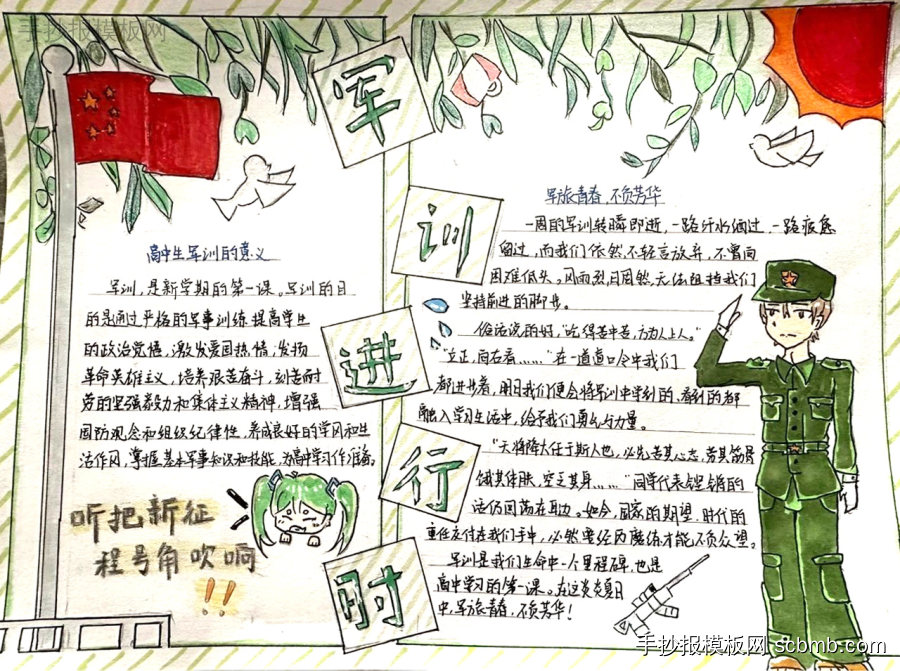 手抄报模板网
军训进行时
高中生军训的意义
军训,是新学期的第一课。军训的目
的是通过严格的军事训练提高学生
的政治觉悟,激发爱国热情,发扬
革命英雄主义,培养艰苦奋斗,刻苦耐
劳的坚强毅力和集体主义精神,增强
国防观念和组织纪律性,养成良好的学风和生
活作风,掌握基本军事知识和技能,为高中学习作准备。
听把新征
程号角吹响
!!
军旅青春,不负芳华
一周的军训转瞬即逝,一路汗水洒过,一路疲惫
留过,而我们依然不轻言放弃,不曾向
困难低头。风雨烈日固然无法阻挡我们
坚持前进的脚步。
俗话说的好,"吃得苦中苦,方为人上人。"
"立正,向右看……"在一道道口令中我们
都进步着,明日我们便会将军训中学到的、看到的都
融入学习生活中,给予我们勇气与力量。
"天将降大任于斯人也,必先苦其心志,劳其筋骨
饿其体肤,空乏其身……"同学代表铿锵的
话仍回荡在耳边。如今,国家的期望,时代的
重任交付在我们手中,必然要经历磨练才能不负众望。
军训是我们生命中一个里程碑,也是
高中学习的第一课。在这炎炎夏日
中,军旅青春,不负芳华!
手抄报模板网 scbmb.com